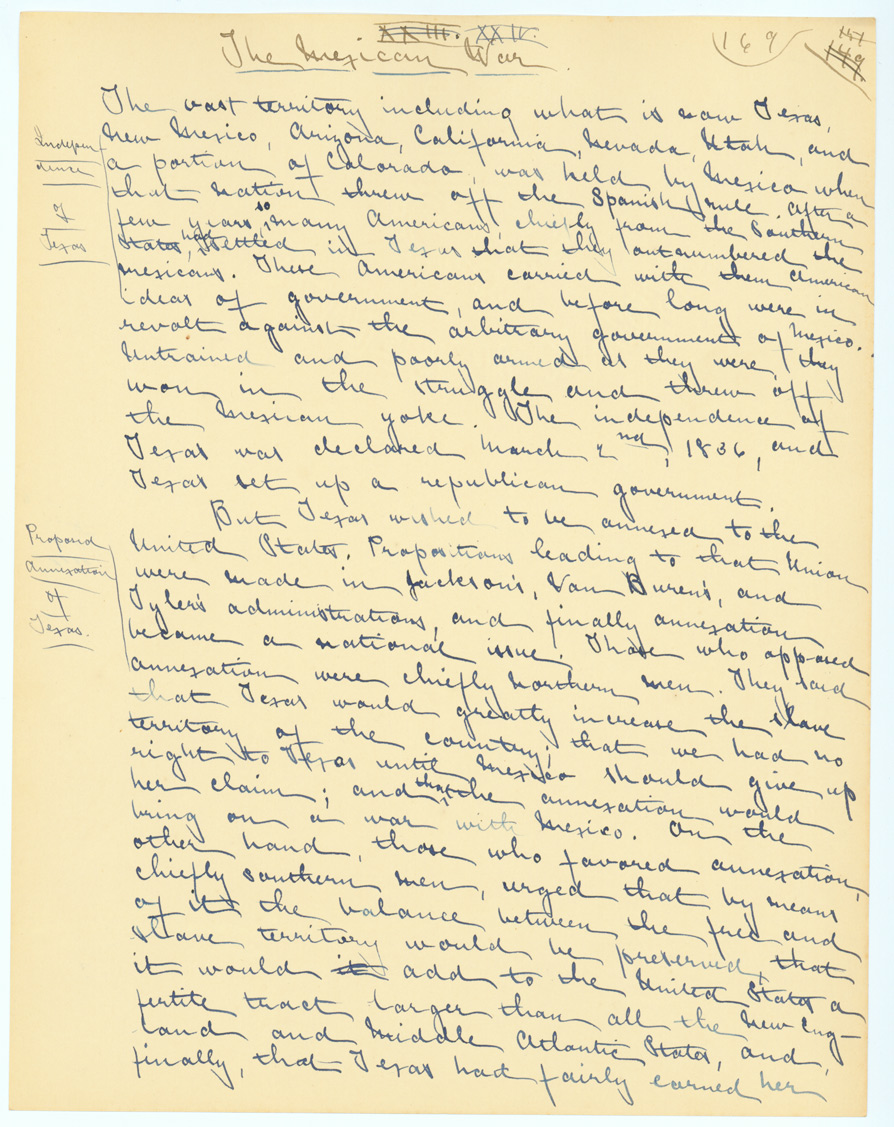 XXIII. XXIV.
The Mexican War.
169
151
149.
The vast territory including what is now Texas,
New Mexico, Arizona, California, Nevada, Utah, and
a portion of Colorado, was held by Mexico when
that nation threw off the Spanish rule. After a
few years, so many Americans, chiefly from the Southern
States, had settled in Texas that they outnumbered the
Mexicans. These Americans carried with them American
ideas of government, and before long were in
revolt against the arbitrary government of Mexico.
Untrained and poorly armed as they were, they
won in the struggle and threw off
the Mexican yoke. The independence of
Texas was declared March 2nd, 1836, and
Texas set up a republican government.
Independence
of
Texas
But Texas wished to be annexed to the
United States. Propositions leading to that Union
were made in Jackson's, Van Buren's, and
Tyler's administrations, and finally annexation
became a national issue. Those who opposed
annexation were chiefly Northern men. They said
that Texas would greatly increase the slave
territory of the country; that we had no
right to Texas until Mexico should give up
her claim; and that the annexation would
bring on a war with Mexico. On the
other hand, those who favored annexation,
chiefly southern men, urged that by means
of it the balance between the free and
slave territory would be preserved, that
it would it add to the United States a
fertile tract larger than all the New Eng-
land and Middle Atlantic States, and,
finally, that Texas had fairly earned her
Proposed
Annexation
of
Texas.